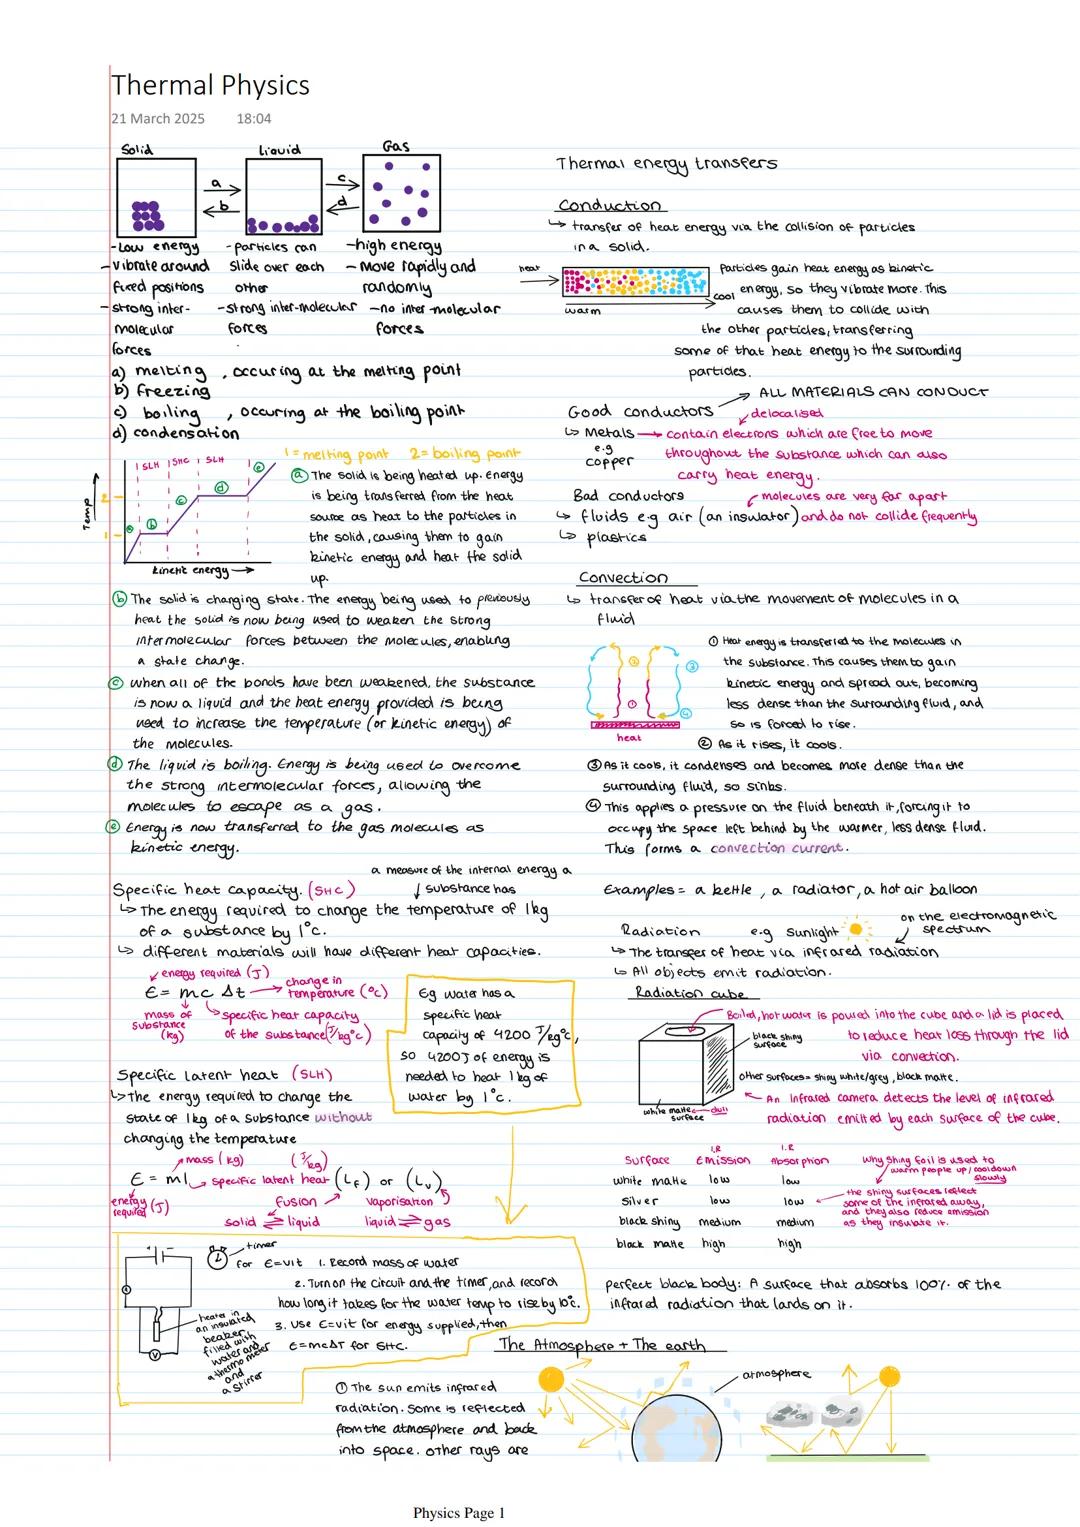 Thermal Physics
21 March 2025 18:04
Solid Liquid Gas
a c
b d
-Low energy
-vibrate around
fixed positions
-strong inter-
molecular
forces
-particles can
slide over each
other
-strong inter-molecular
forces
-high energy
-Move rapidly and
randomly
-no inter-molecular
forces
a) melting , occuring at the melting point
b) freezing
c) boiling , occuring at the boiling point
d) condensation
1 = melting point 2 = boiling point
SLH SHC SLH
a b c d e
Temp
2
1
kinetic energy
a The solid is being heated up. Energy
is being transferred from the heat
source as heat to the particles in
the solid, causing them to gain
kinetic energy and heat the solid
up.
b The solid is changing state. The energy being used to previously
heat the solid is now being used to weaken the strong
intermolecular forces between the molecules, enabling
a state change.
c When all of the bonds have been weakened, the substance
is now a liquid and the heat energy provided is being
used to increase the temperature (or kinetic energy) of
the molecules.
d The liquid is boiling. Energy is being used to overcome
the strong intermolecular forces, allowing the
molecules to escape as a gas.
e Energy is now transferred to the gas molecules as
kinetic energy.
a measure of the internal energy a
substance has
Specific heat capacity. (SHC)
↳ The energy required to change the temperature of 1kg
of a substance by 1°c.
↳ different materials will have different heat capacities.
energy required (J)
E = mc Δt → change in
temperature (°c)
mass of
substance
(kg)
specific heat capacity
of the substance (J/kg°c)
Eg water has a
specific heat
capacity of 4200 J/kg°c,
so 4200J of energy is
needed to heat 1kg of
water by 1°c.
Specific latent heat (SLH)
↳ The energy required to change the
state of 1kg of a substance without
changing the temperature
mass (kg) (J/kg)
E = ml specific latent heat (Lf) or (Lv)
energy
required (J)
fusion vaporisation
solid ⇌ liquid liquid ⇌ gas
timer
for E=vit 1. Record mass of water
2. Turn on the circuit and the timer, and record
how long it takes for the water temp to rise by 10°c.
3. Use E=vit for energy supplied, then
E=mcΔT for SHC.
A
V
heater in
an insulated
beaker
filled with
water and
a thermometer
and
a stirrer
Thermal energy transfers
Conduction
↳ transfer of heat energy via the collision of particles
in a solid.
heat
warm
cool
Particles gain heat energy as kinetic
energy, so they vibrate more. This
causes them to collide with
the other particles, transferring
some of that heat energy to the surrounding
particles.
ALL MATERIALS CAN CONDUCT
Good conductors
delocalised
↳ Metals → contain electrons which are free to move
e.g
copper
throughout the substance which can also
carry heat energy.
Bad conductors
molecules are very far apart
↳ fluids e.g air (an insulator) and do not collide frequently
↳ plastics
Convection
↳ transfer of heat via the movement of molecules in a
fluid
heat
1
2
3
4
① Heat energy is transferred to the molecules in
the substance. This causes them to gain
kinetic energy and spread out, becoming
less dense than the surrounding fluid, and
so is forced to rise.
② As it rises, it cools.
③ As it cools, it condenses and becomes more dense than the
surrounding fluid, so sinks.
④ This applies a pressure on the fluid beneath it, forcing it to
occupy the space left behind by the warmer, less dense fluid.
This forms a convection current.
Examples = a kettle , a radiator, a hot air balloon
Radiation e.g sunlight
on the electromagnetic
spectrum
↳ The transfer of heat via infrared radiation
↳ All objects emit radiation.
Radiation cube
Boiled, hot water is poured into the cube and a lid is placed
to reduce heat loss through the lid
via convection.
black shiny
surface
other surfaces = shiny white/grey, black matte.
white matte dull
surface
An infrared camera detects the level of infrared
radiation emitted by each surface of the cube.
Surface I.R Emission I.R Absorption
white matte low low
silver low low
black shiny medium medium
black matte high high
Why shing foil is used to
warm people up / cooldown
slowly
the shiny surfaces reflect
some of the infrared away,
and they also reduce emission
as they insulate it.
perfect black body: A surface that absorbs 100% of the
infrared radiation that lands on it.
The Atmosphere + The earth
atmosphere
① The sun emits infrared
radiation. Some is reflected
from the atmosphere and back
into space. Other rays are
Physics Page 1